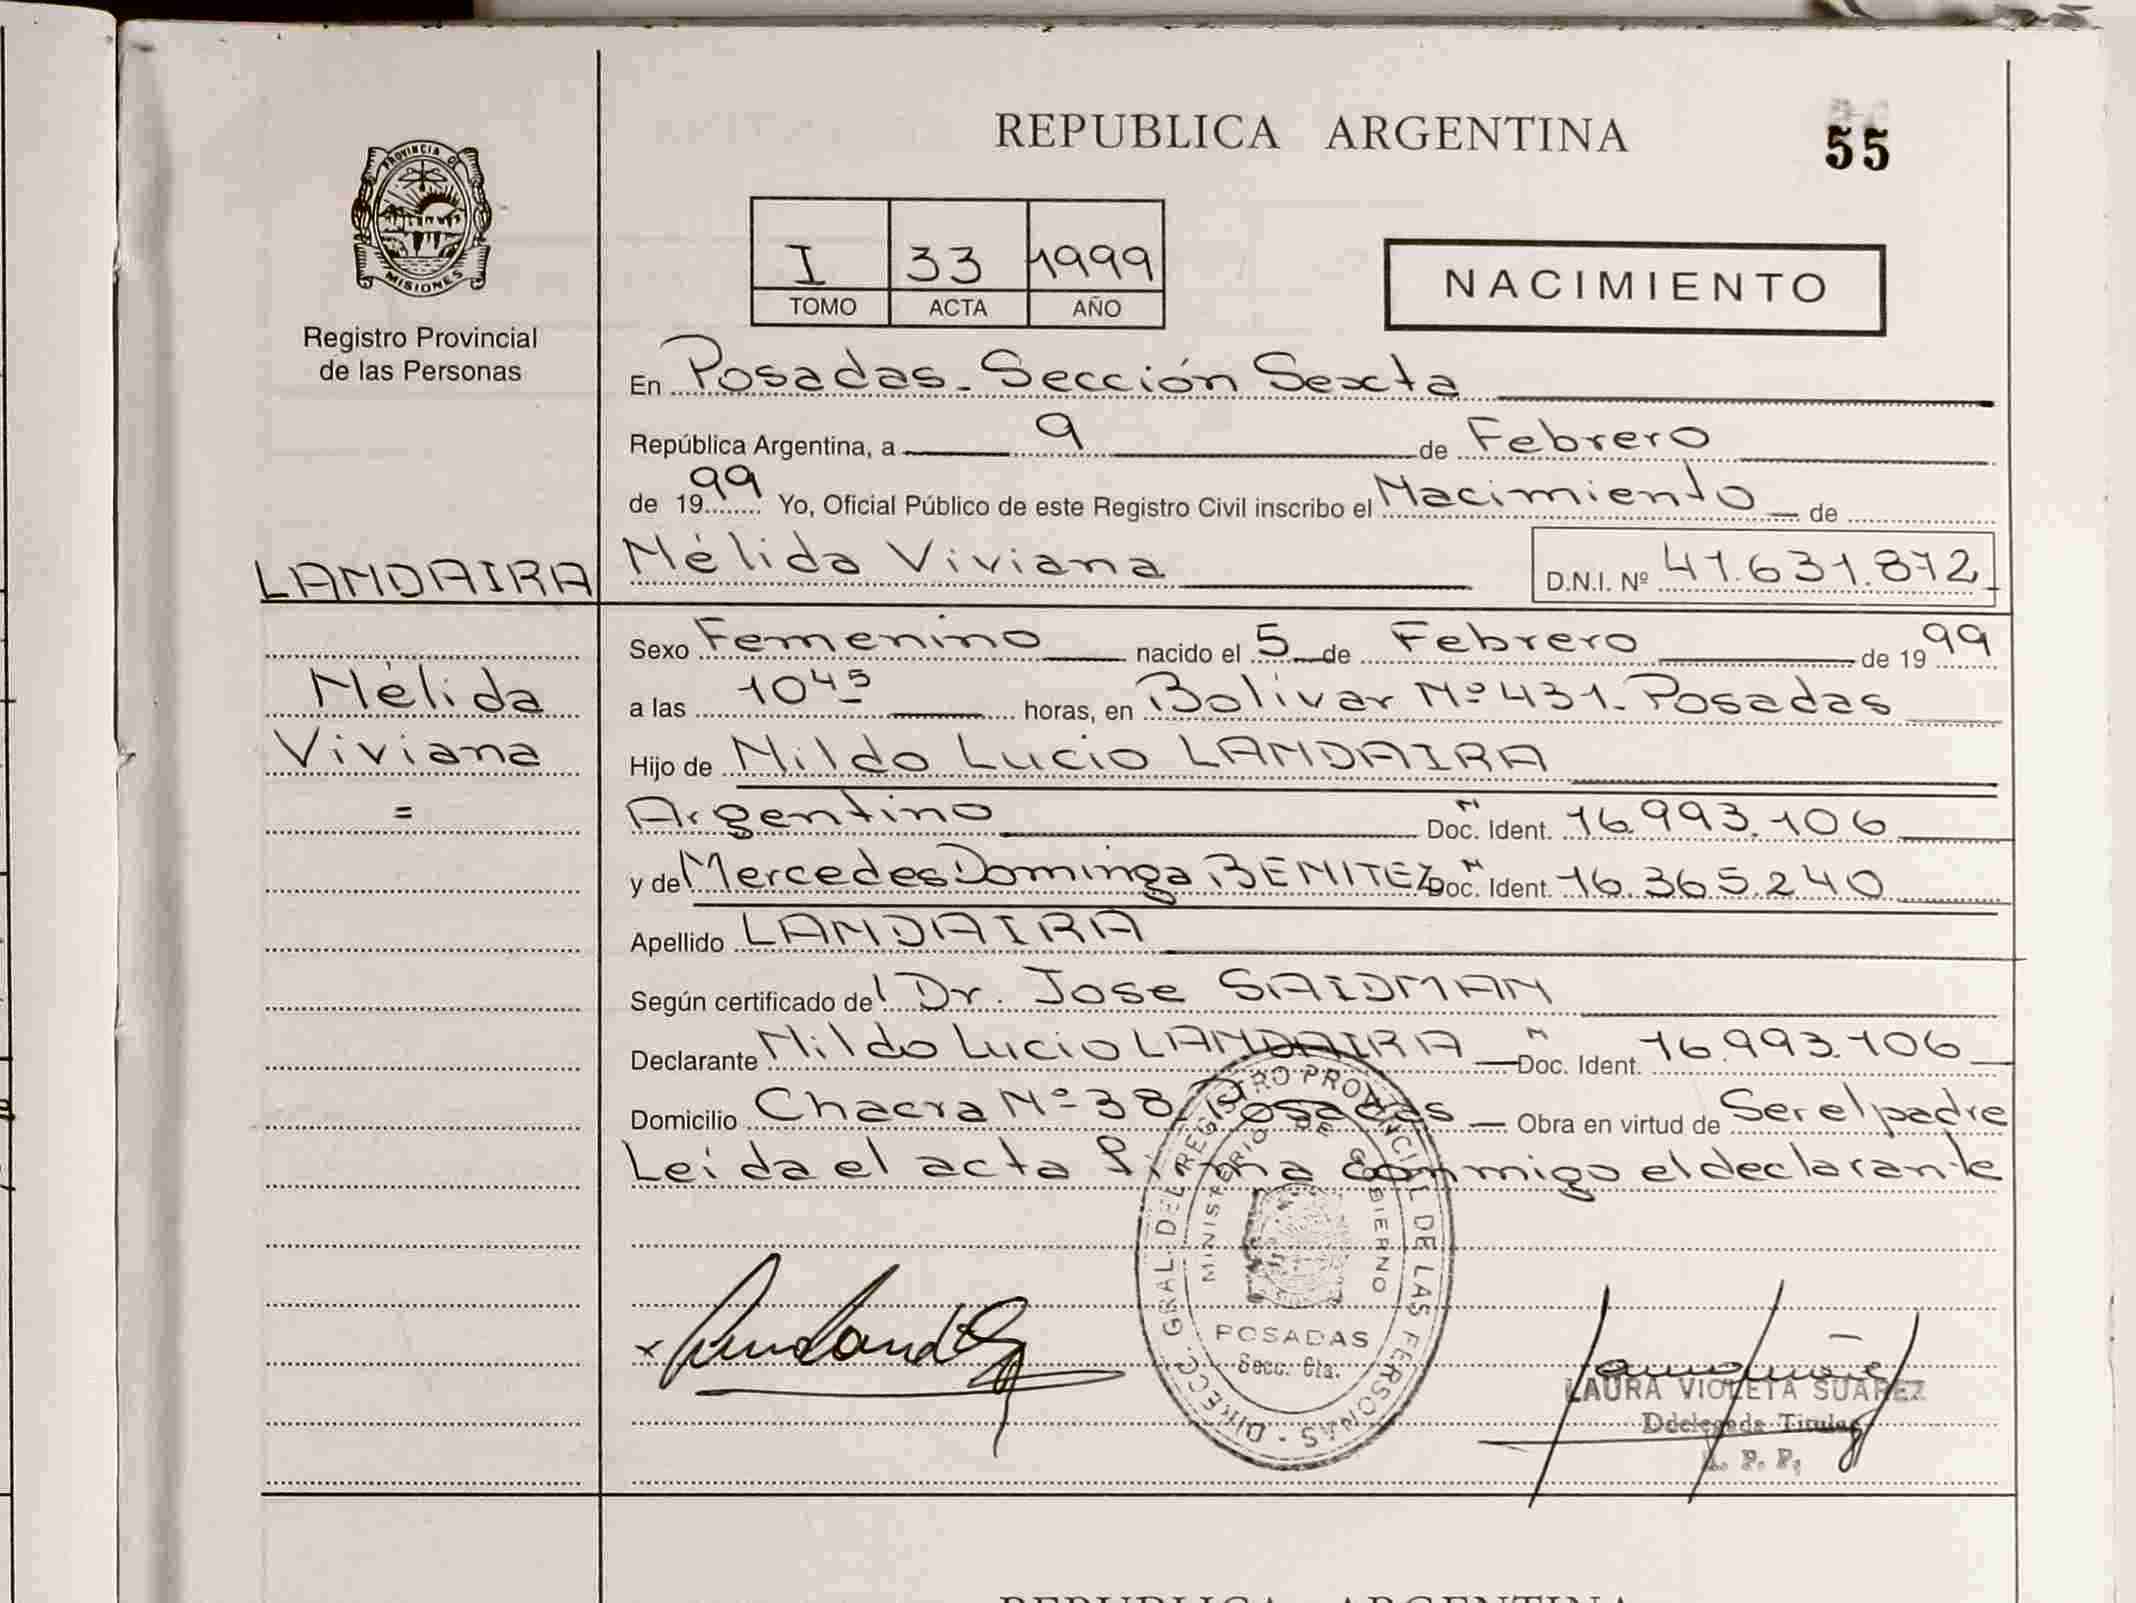 REPUBLICA ARGENTINA
55
PROVINCIA DE
MISIONES
Registro Provincial
de las Personas
I 33 1999
TOMO ACTA AÑO
NACIMIENTO
En Posadas - Sección Sexta
República Argentina, a 9 de Febrero
de 1999 Yo, Oficial Público de este Registro Civil inscribo el Nacimiento de
Nélida Viviana D.N.I. Nº 41.631.812
LANDAIRA
Nélida
Viviana
=
Sexo Femenino nacido el 5 de Febrero de 1999
a las 10 45 horas, en Bolivar Nº 431 - Posadas
Hijo de Nildo Lucio LANDAIRA
Argentino Doc. N Ident. 16.993.106
y de Mercedes Dominga BENITEZ Doc. N Ident. 16.365.240
Apellido LANDAIRA
Según certificado del Dr. Jose SAIDMAN
Declarante Nildo Lucio LANDAIRA Doc. N Ident. 16.993.106
Domicilio Chacra Nº 38 Posadas Obra en virtud de Ser el padre
Leida el acta firma conmigo el declarante
DIRECC. GRAL. DEL REGISTRO PROVINCIAL DE LAS PERSONAS
MINISTERIO DE GOBIERNO
POSADAS
Secc. 6ta.
LAURA VIOLETA SUAREZ
Ddelegada Titular
R. P. P.
REPUBLICA ARGENTINA